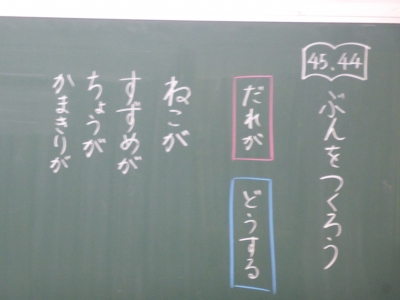 45.44
ぶんをつくろう
だれが
どうする
ねこが
すずめが
ちょうが
かまきりが